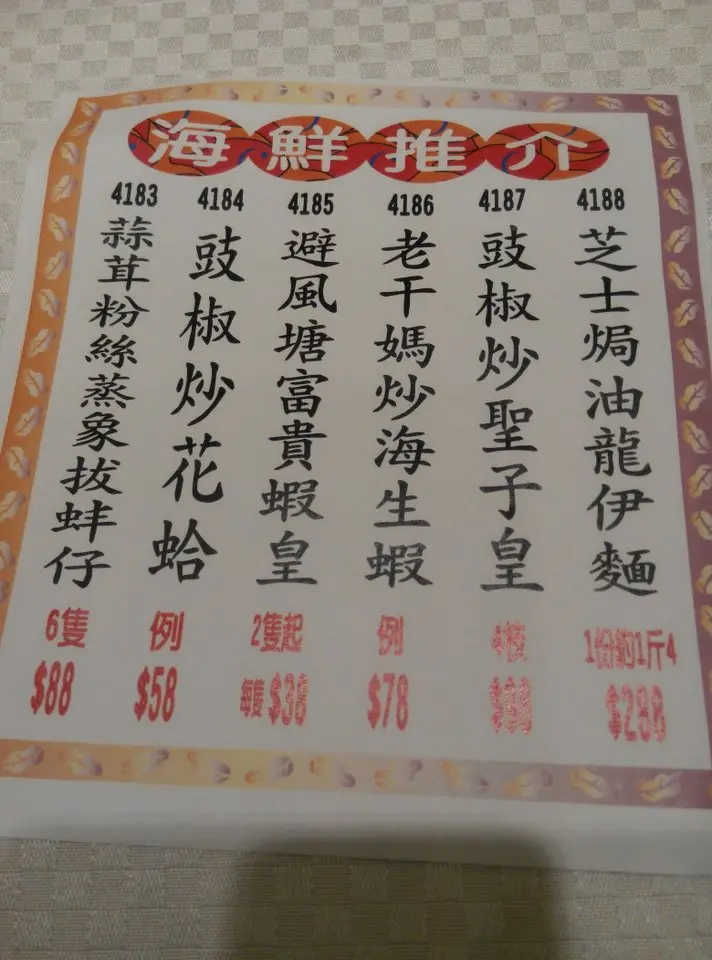 海鮮推介
4183
蒜茸粉絲蒸象拔蚌仔
6隻
$88
4184
豉椒炒花蛤
例
$58
4185
避風塘富貴蝦皇
2隻起
每隻$38
4186
老干媽炒海生蝦
例
$78
4187
豉椒炒聖子皇
$98
4188
芝士焗油龍伊麵
1份約1斤4
$288